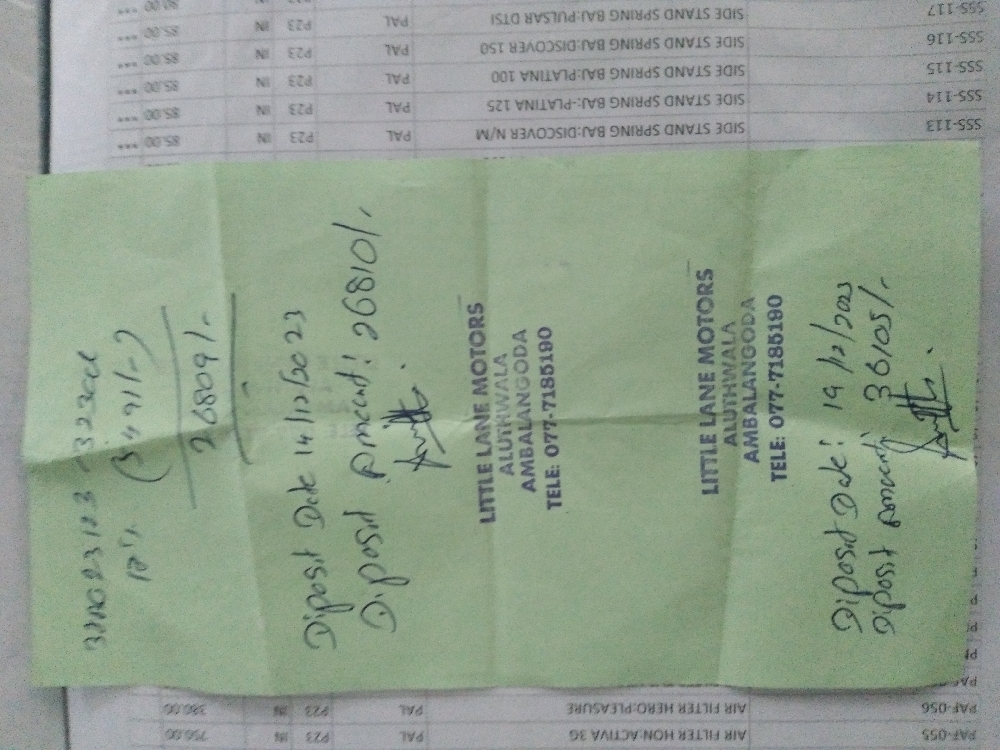 32300/-
17% (5491/-)
26809/-
Diposit Date 14/12/2023
Diposit Amount: 26810/-
LITTLE LANE MOTORS
ALUTHWALA
AMBALANGODA
TELE: 077-7185190
LITTLE LANE MOTORS
ALUTHWALA
AMBALANGODA
TELE: 077-7185190
Diposit Date: 19/12/2023
Diposit Amount: 36105/-
SSS-113 SIDE STAND SPRING BAJ:DISCOVER N/M PAL P23 IN 85.00 ***
SSS-114 SIDE STAND SPRING BAJ:-PLATINA 125 PAL P23 IN 85.00 ***
SSS-115 SIDE STAND SPRING BAJ:PLATINA 100 PAL P23 IN 85.00 ***
SSS-116 SIDE STAND SPRING BAJ:DISCOVER 150 PAL P23 IN 85.00 ***
SSS-117 SIDE STAND SPRING BAJ:PULSAR DTSI PAL P23 IN 85.00 ***
PAF-055 AIR FILTER HON:ACTIVA 3G PAL P23 IN 756.00
PAF-056 AIR FILTER HERO:PLEASURE PAL P23 IN 386.00